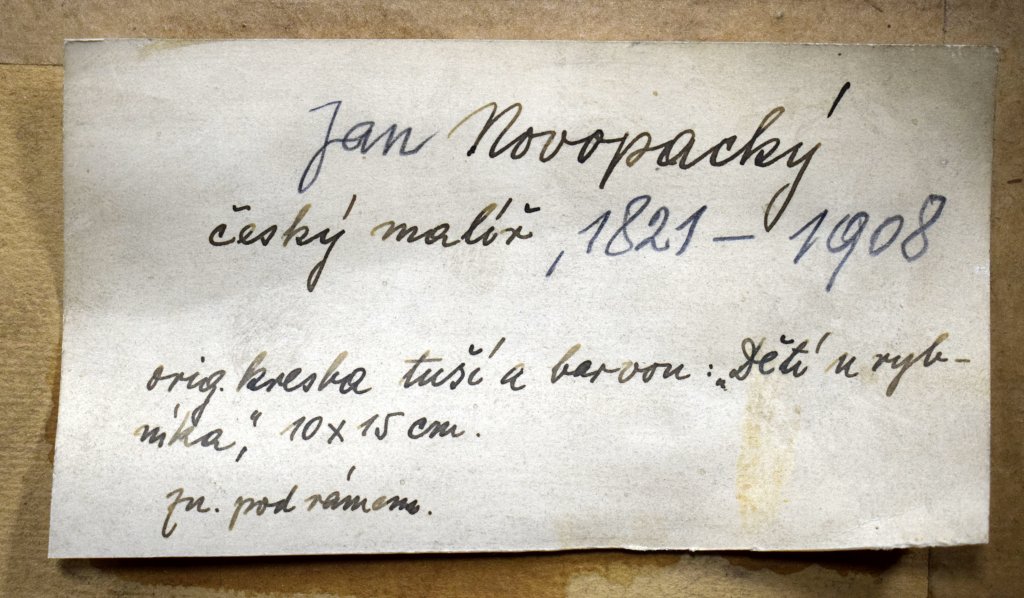 Jan Novopacký
český malíř, 1821 – 1908
orig. kresba tuší a barvou: „Dětí u ryb-
níka“, 10 x 15 cm.
zn. pod rámem.